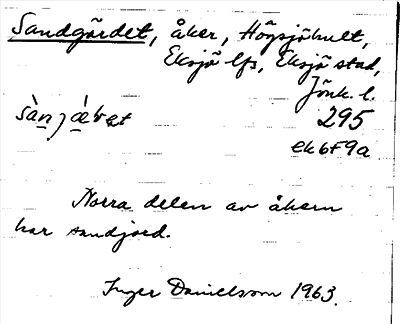 Sandgärdet, åker, Högsjöhult,
Eksjö lfs, Eksjö stad,
Jönk. l.
295
ek6F9a
Norra delen av åkern
har sandjord.
Inger Danielsson 1963.